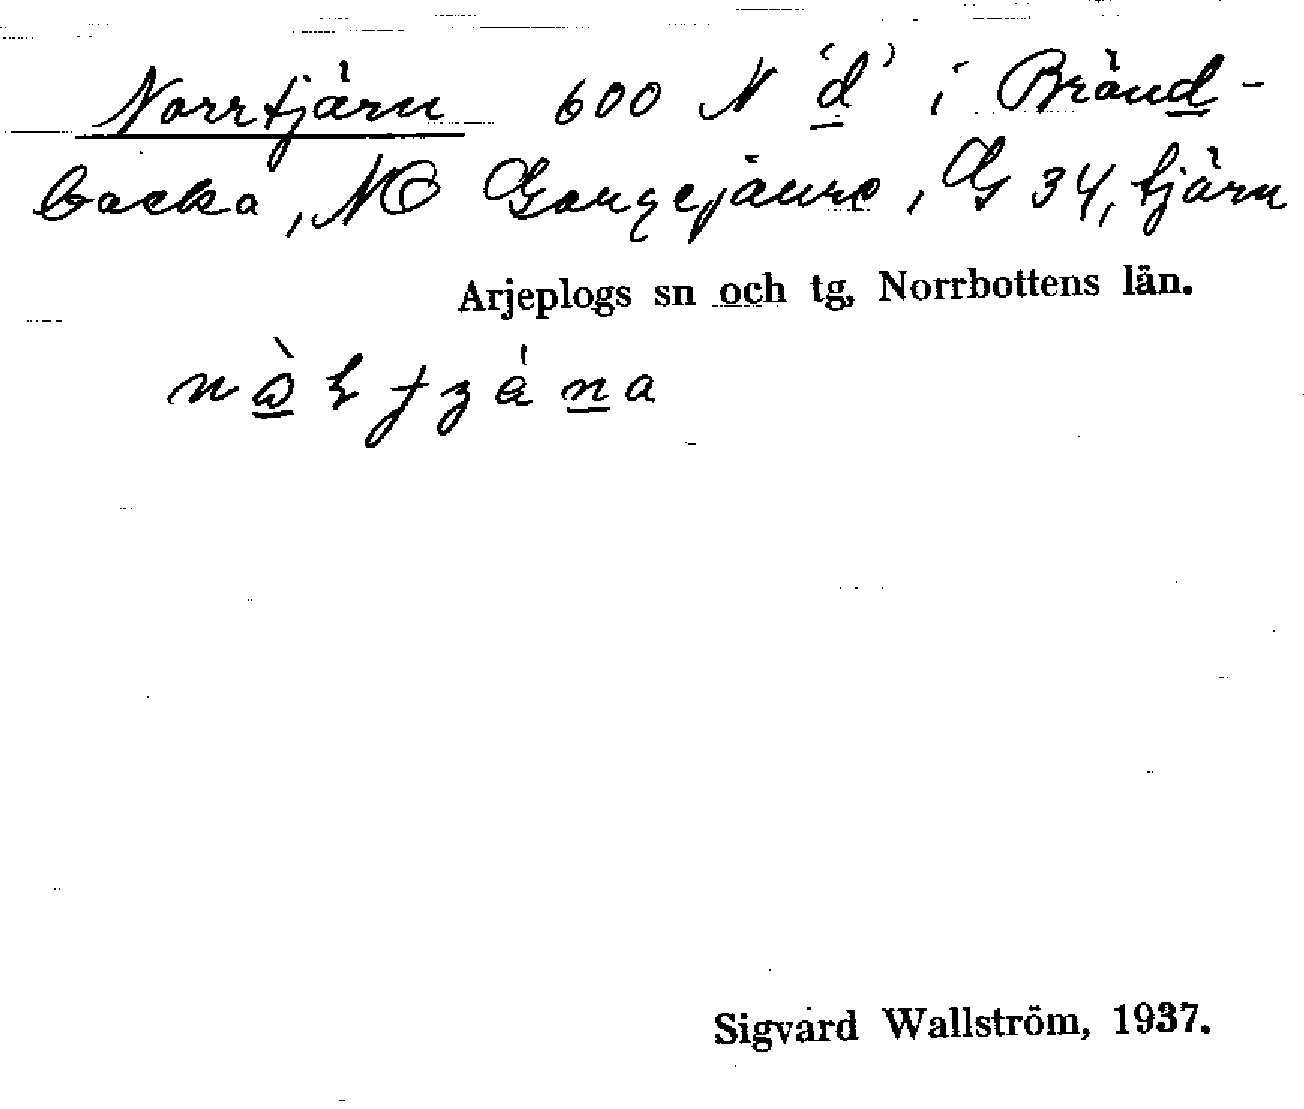 Norrtjärn 600 N 'd' i Bränd-
backa, NO Gaugejaure, G 34, tjärn
Arjeplogs sn och tg, Norrbottens län.
Sigvard Wallström, 1937.